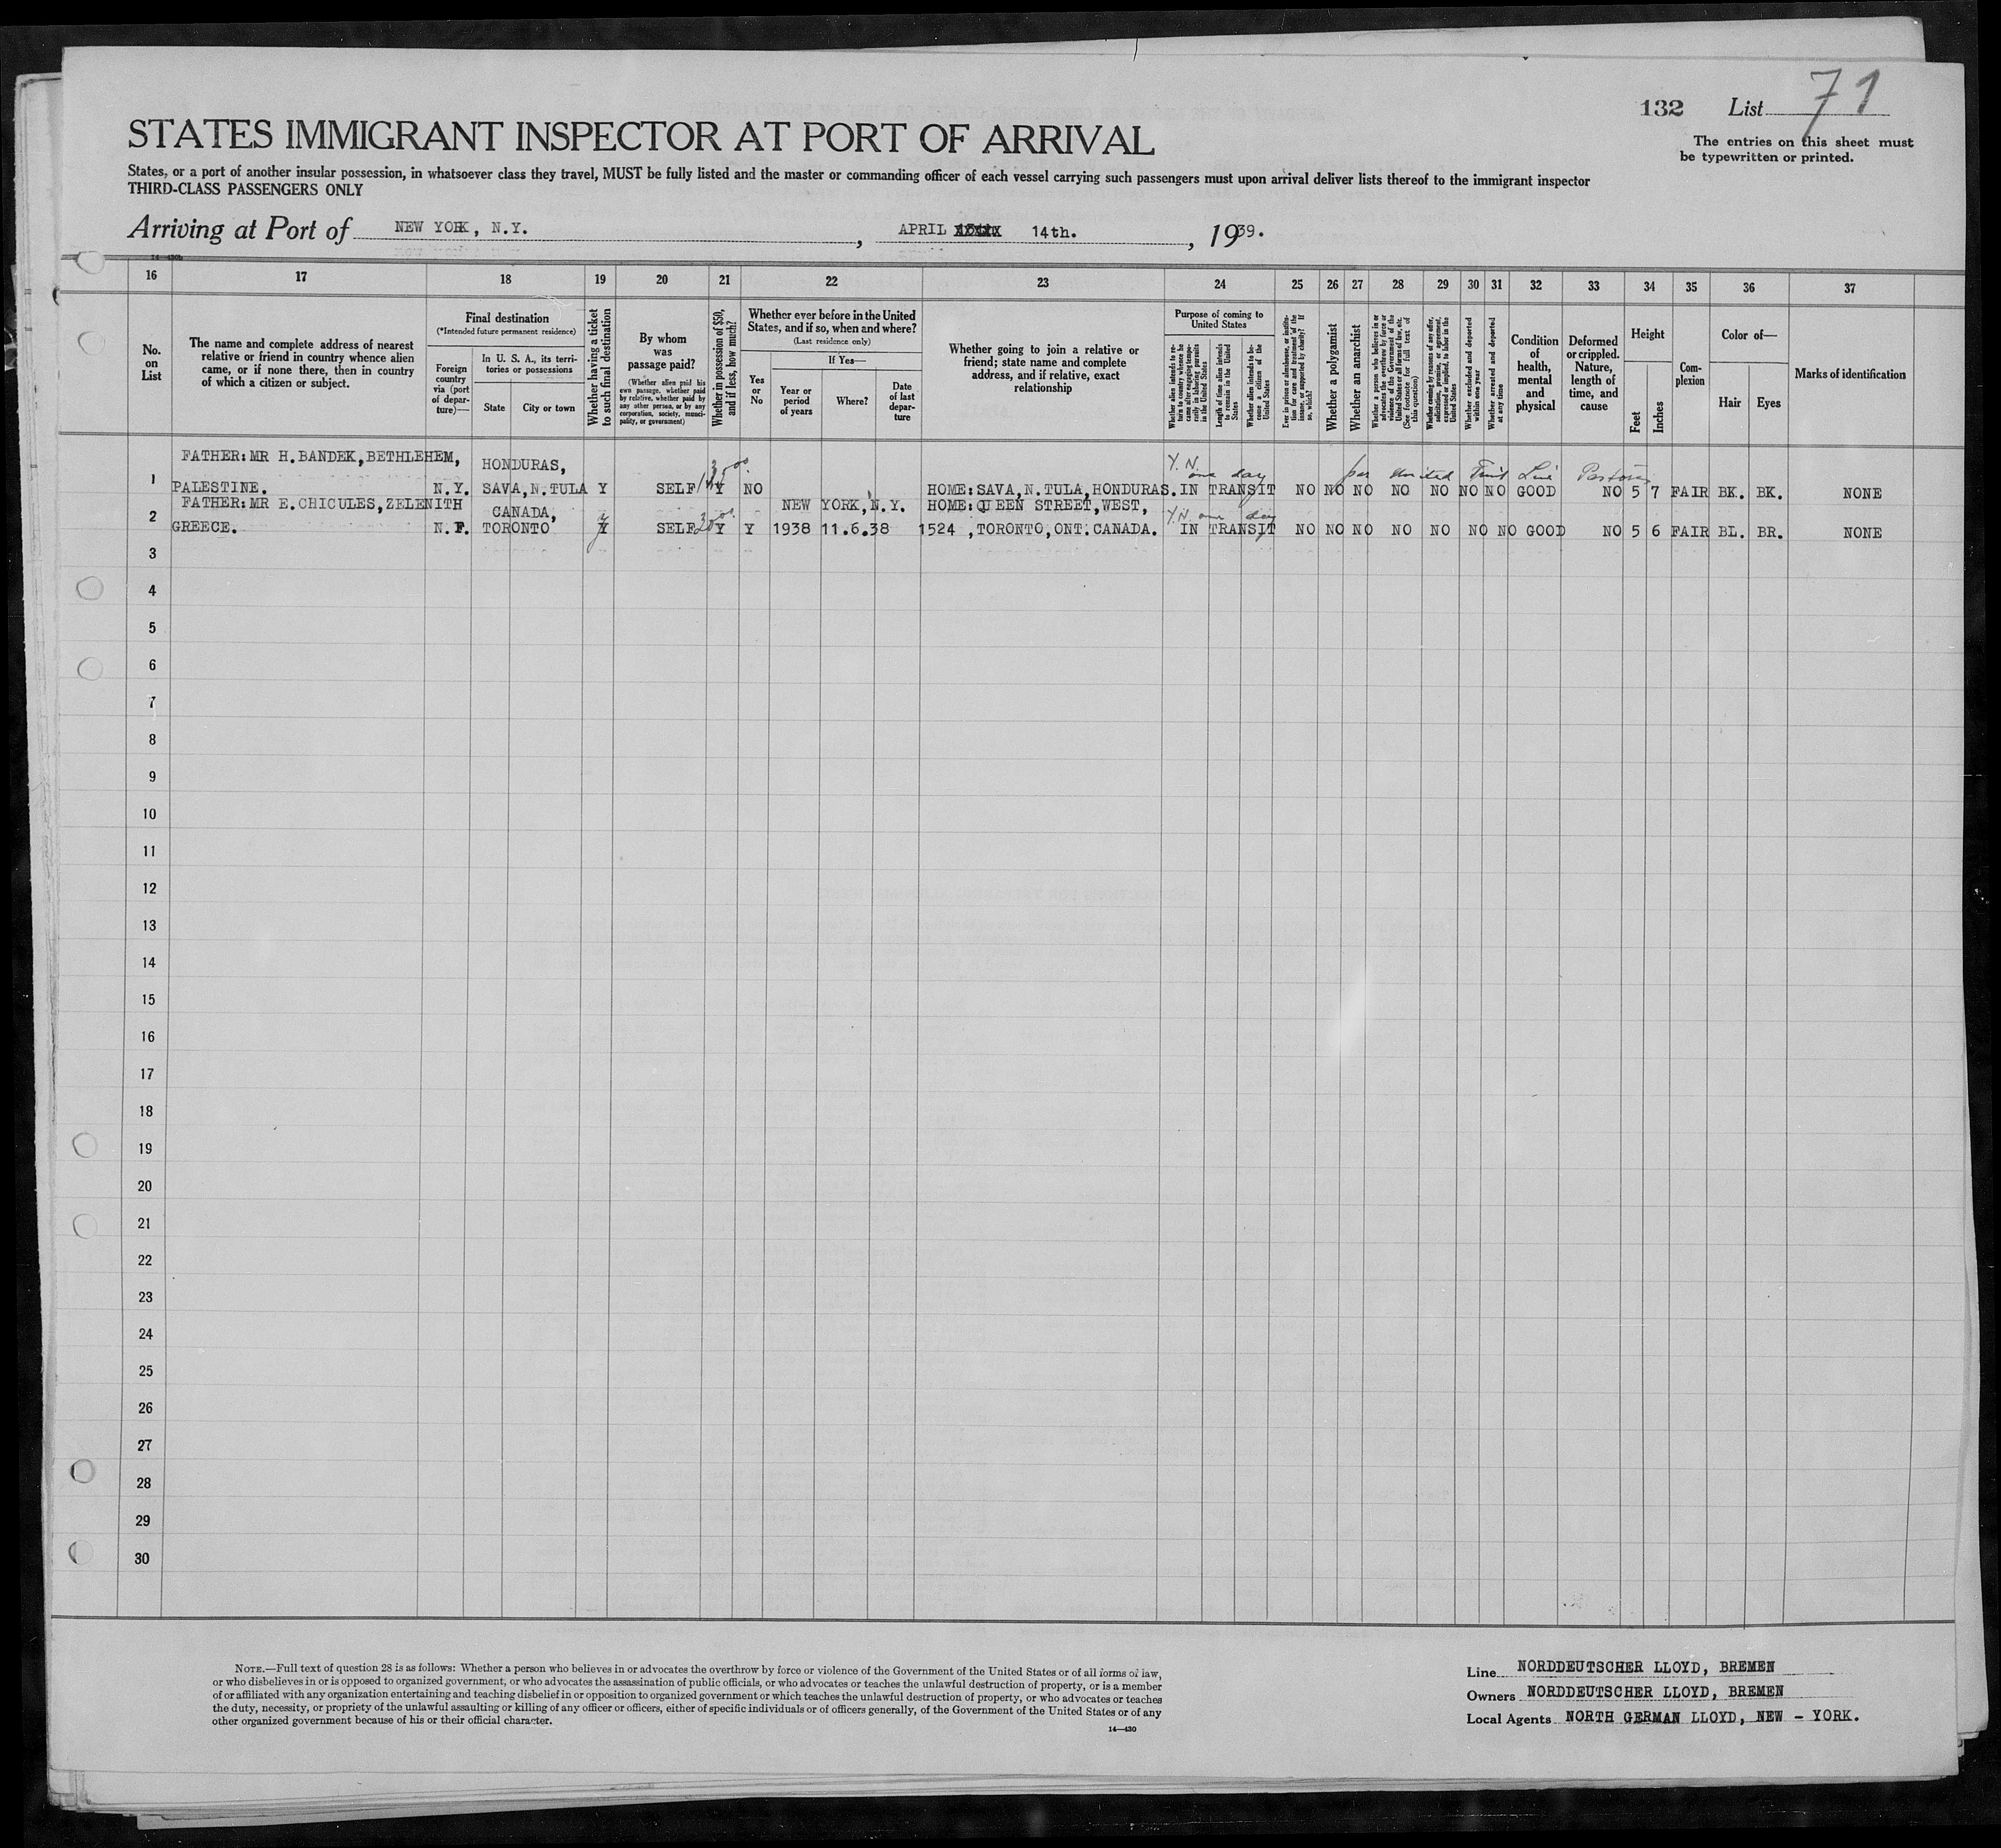 132 List 71
The entries on this sheet must
be typewritten or printed.
STATES IMMIGRANT INSPECTOR AT PORT OF ARRIVAL
States, or a port of another insular possession, in whatsoever class they travel, MUST be fully listed and the master or commanding officer of each vessel carrying such passengers must upon arrival deliver lists thereof to the immigrant inspector
THIRD-CLASS PASSENGERS ONLY
Arriving at Port of NEW YORK, N.Y., APRIL 14th., 1939.
16 17 18 19 20 21 22 23 24 25 26 27 28 29 30 31 32 33 34 35 36 37
No. on List
The name and complete address of nearest relative or friend in country whence alien came, or if none there, then in country of which a citizen or subject.
Final destination
(*Intended future permanent residence)
Foreign country via (port of departure)—
In U. S. A., its territories or possessions
State
City or town
Whether having a ticket to such final destination
By whom was passage paid?
(Whether alien paid his own passage, whether paid by relative, whether paid by any other person, or by any corporation, society, municipality, or government)
Whether in possession of $50, and if less, how much?
Whether ever before in the United States, and if so, when and where?
(Last residence only)
Yes or No
If Yes—
Year or period of years
Where?
Date of last departure
Whether going to join a relative or friend; state name and complete address, and if relative, exact relationship
Purpose of coming to United States
Whether alien intends to return to country whence he came after engaging temporarily in laboring pursuits in the United States
Length of time alien intends to remain in the United States
Whether alien intends to become a citizen of the United States
Ever in prison or almshouse, or institution for care and treatment of the insane, or supported by charity? If so, which?
Whether a polygamist
Whether an anarchist
Whether a person who believes in or advocates the overthrow by force or violence of the Government of the United States or all forms of law, etc. (See footnote for full text of this question)
Whether coming by reasons of any offer, solicitation, promise, or agreement, expressed or implied, to labor in the United States
Whether excluded and deported within one year
Whether arrested and deported at any time
Condition of health, mental and physical
Deformed or crippled. Nature, length of time, and cause
Height
Feet
Inches
Complexion
Color of—
Hair
Eyes
Marks of identification
FATHER:MR H.BANDEK,BETHLEHEM, HONDURAS, Y.N. one day per United Fruit Line
1 PALESTINE. N.Y. SAVA,N.TULA Y SELF Y NO HOME:SAVA,N.TULA,HONDURAS. IN TRANSIT NO NO NO NO NO NO NO GOOD NO 5 7 FAIR BK. BK. NONE
FATHER:MR E.CHICULES,ZELENITH CANADA, NEW YORK,N.Y. HOME:QUEEN STREET,WEST, Y.N one day
2 GREECE. N.F. TORONTO Y SELF Y Y 1938 11.6.38 1524 ,TORONTO,ONT.CANADA. IN TRANSIT NO NO NO NO NO NO NO GOOD NO 5 6 FAIR BL. BR. NONE
3
4
5
6
7
8
9
10
11
12
13
14
15
16
17
18
19
20
21
22
23
24
25
26
27
28
29
30
NOTE.—Full text of question 28 is as follows: Whether a person who believes in or advocates the overthrow by force or violence of the Government of the United States or of all forms of law,
or who disbelieves in or is opposed to organized government, or who advocates the assassination of public officials, or who advocates or teaches the unlawful destruction of property, or is a member
of or affiliated with any organization entertaining and teaching disbelief in or opposition to organized government or which teaches the unlawful destruction of property, or who advocates or teaches
the duty, necessity, or propriety of the unlawful assaulting or killing of any officer or officers, either of specific individuals or of officers generally, of the Government of the United States or of any
other organized government because of his or their official character.
14—430
Line NORDDEUTSCHER LLOYD, BREMEN
Owners NORDDEUTSCHER LLOYD, BREMEN
Local Agents NORTH GERMAN LLOYD, NEW - YORK.